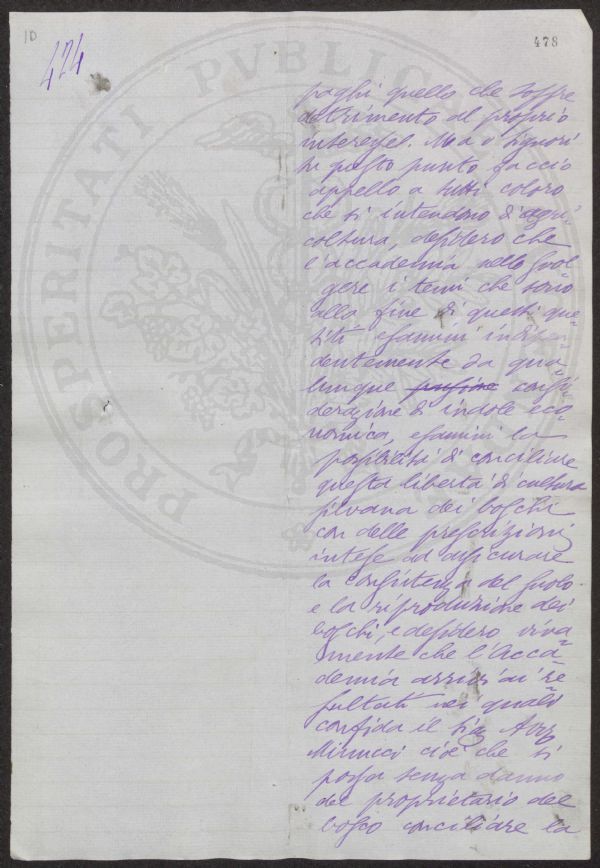 10
424
478
PROSPERITATI PVBLICAE
paghi quello che soffre
detrimento al proprio
interesse. Ma o signori
su questo punto faccio
appello a tutti coloro
che si intendono d'agri„
coltura, desidero che
l'accademia nello svol„
gere i temi che sono
alla fine di questi que„
siti esamini indipen„
dentemente da qua„
lunque passione consi„
derazione di indole eco„
nomica, esamini la
possibilità di conciliare
questa libertà di cultura
silvana dei boschi
con delle prescrizioni
intese ad assicurare
la consistenza del suolo
e la riproduzione dei
boschi, e desidero viva„
mente che l'Acca„
demia arrivi ai re„
sultati nei quali
confida il Sig. Avv.
Minucci cioè che si
possa senza danno
del proprietario del
bosco conciliare la